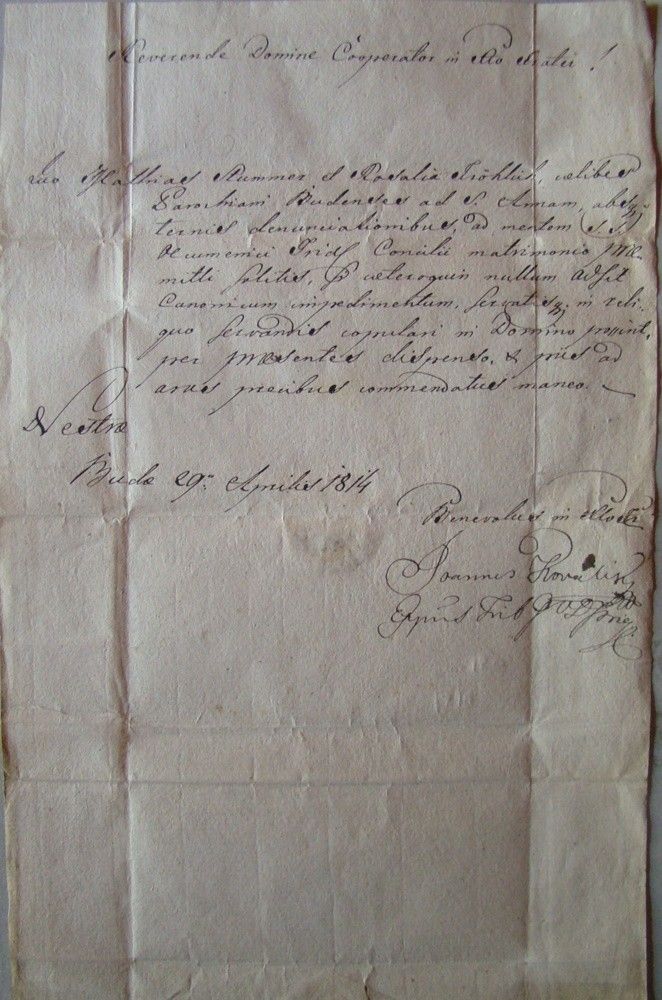 Reverende Domine Cooperator in Xto Frater!
Quo Mathias Stummer et Rosalia Fröhlich, cælibes
Parochiani Budenses ad S. Annam, absq;
ternis denunciationibus, ad mentem S. S.
Œcumenici Trid. Concilii matrimonio præ-
mitti solitis, si cæteroquin nullum adsit
Canonicum impedimentum, servatisq; in reli-
quo servandis copulari in Domino possint,
per præsentes dispenso, & piis ad
aras precibus commendatus maneo.
D Vestræ
Budæ 29. Aprilis 1814
Benevolus in Xto
Joannes Kovalik
Eppus Trib